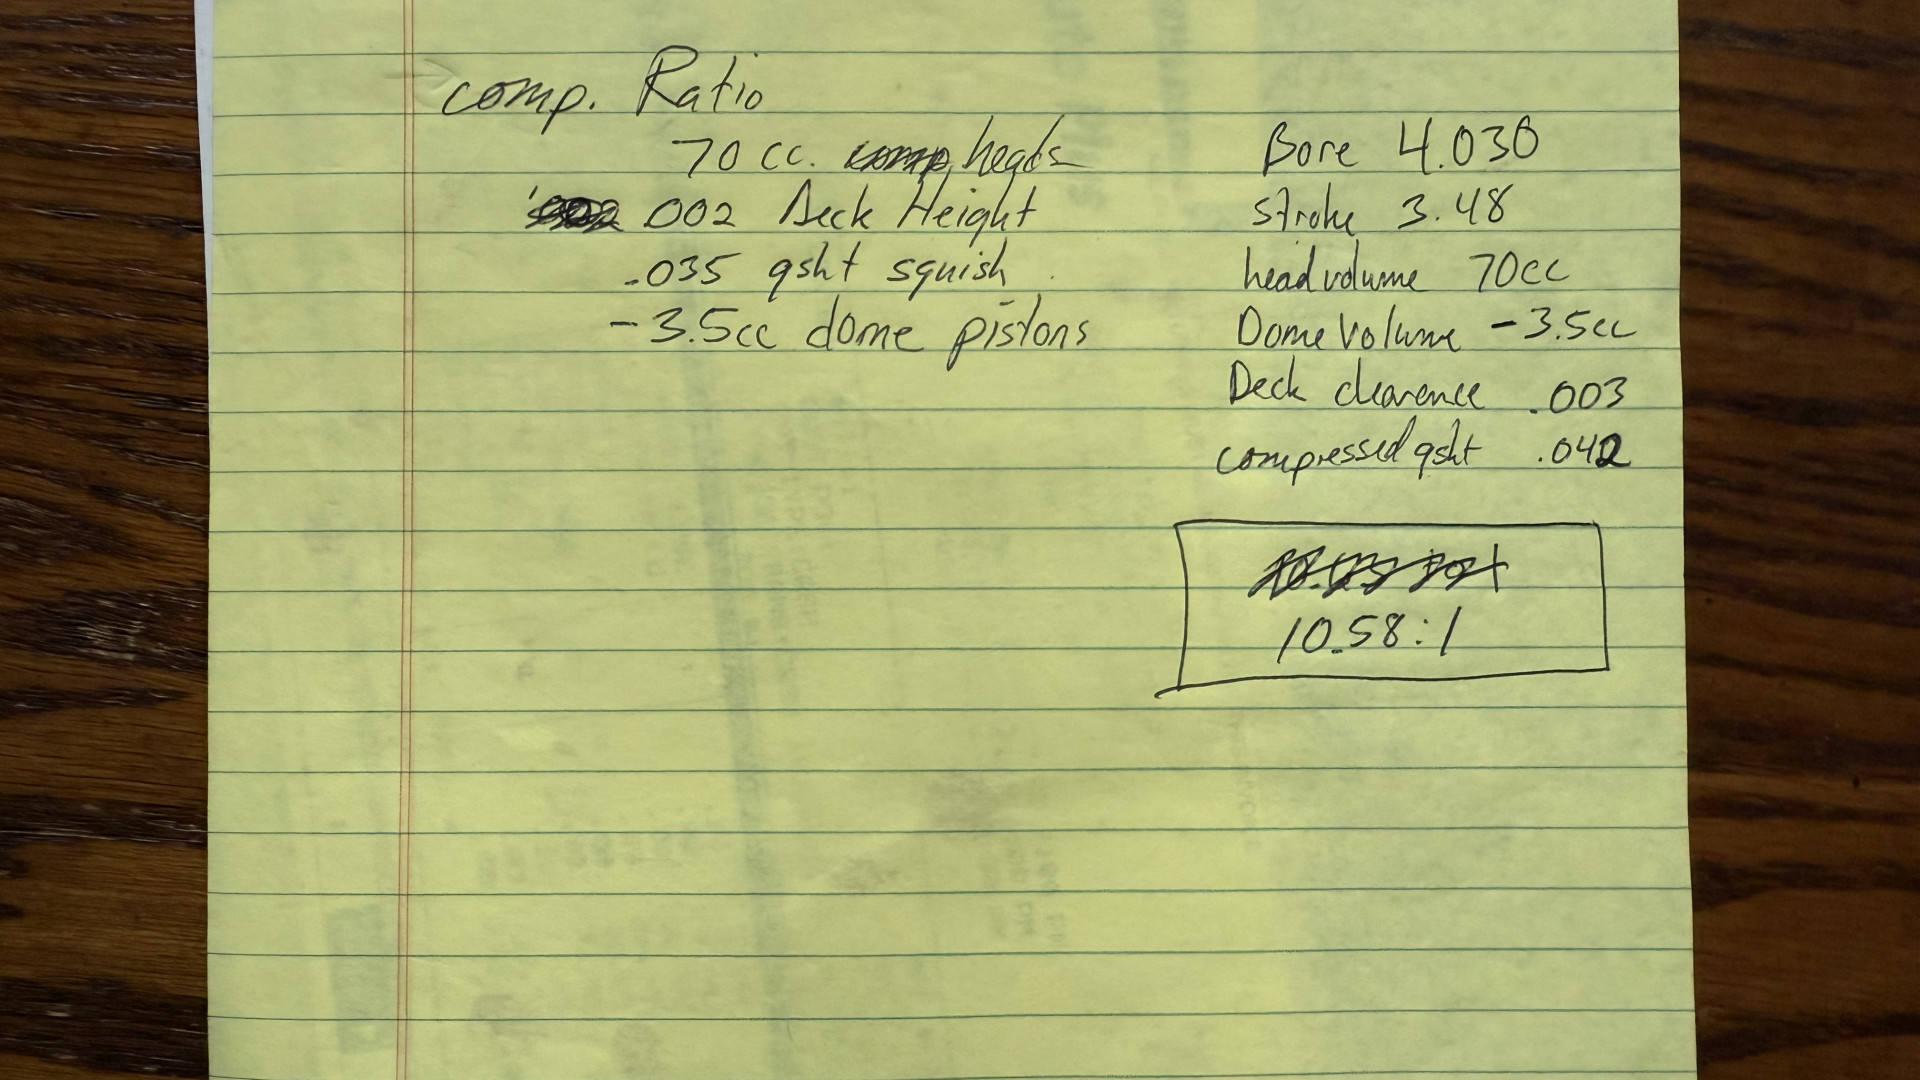 comp. Ratio
70 cc. heads
.002 Deck Height
.035 gskt squish
-3.5cc dome pistons
Bore 4.030
stroke 3.48
head volume 70cc
Dome Volume -3.5cc
Deck clearence .003
compressed gskt .042
10.58:1